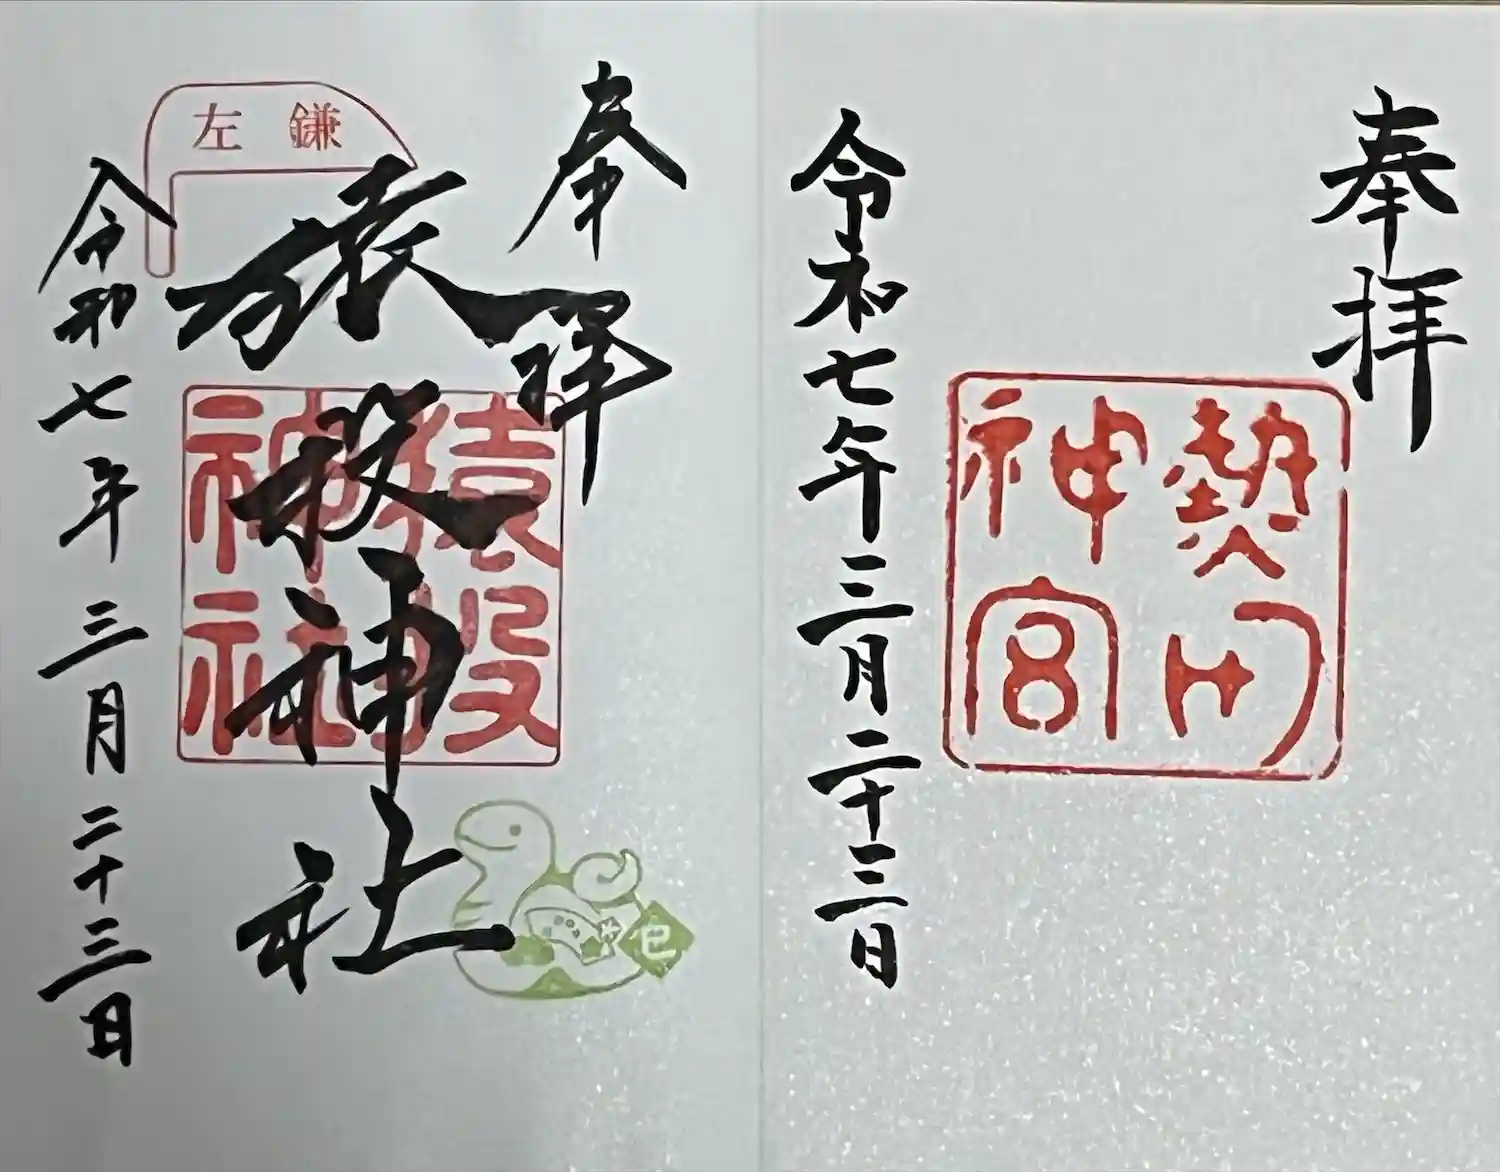 奉拝
熱田
神宮
令和七年三月二十三日
奉拝
左 鎌
猿投神社
猿投
神社
巳
令和七年三月二十三日